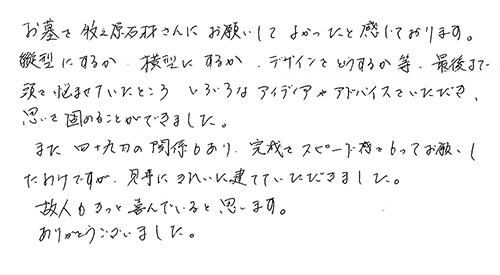 お墓を牧之原石材さんにお願いして よかったと感じております。
縦型にするか、横型にするか、デザインをどうするか等、最後まで
頭を悩ませていたところ いろいろなアイディアやアドバイスをいただき、
思いを固めることができました。
また 四十九日の関係もあり、完成をスピード持をもってお願いし
たわけですが、見事にきれいに建てていただきました。
故人もきっと喜んでいると思います。
ありがとうございました。